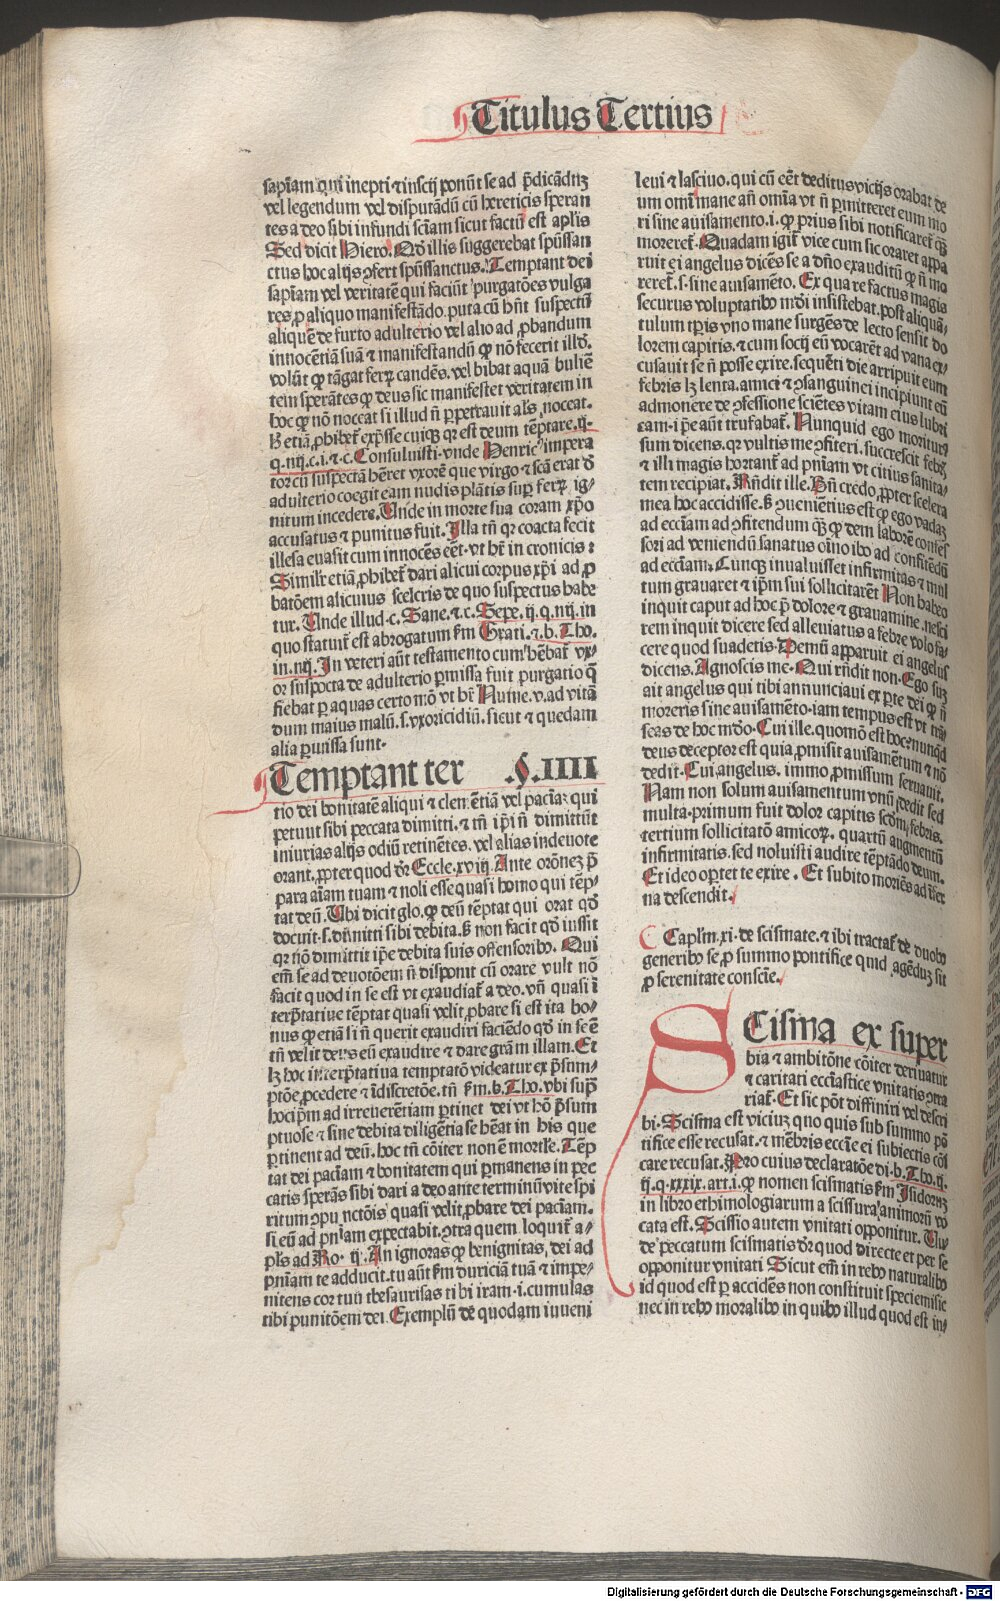 Titulus Tertius
sapīam qui inepti ⁊ inscij ponūt se ad p̄dicādū
vel legendum vel disputādū cū hereticis speran
tes a deo sibi infundi sciam sicut factū est aplis
Sed dicit Hiero. Qd illis suggerebat spūssan
ctus hoc alijs ꝯfert spūssanctus. Temptant dei
sapīam vel veritatē qui faciūt purgatōes vulga
res, ꝓ aliquo manifestādo. puta cū hn̄t suspectū
aliquē de furto adulterio vel alio ad ꝓbandum
innocētiā suā ⁊ manifestandū ꝙ nō fecerit illd.
volūt ꝙ tāgat ferꝝ candēs. vel bibat aquā bulie
tem sperātes ꝙ deus sic manifestet veritatem in
hoc ꝙ nō noceat si illud n̄ ꝑpetrauit als noceat.
etiā ꝓhibet exp̄sse cuiqꝫ qr est deum tēptare. ij.
q. iiij. c. i. ⁊ c. Consuluisti. vnde Henric impera
tor cū suspectā hēret vxorē que virgo ⁊ scā erat d
adulterio coegit eam nudis plātis suꝑ ferꝝ ig-
nitum incedere. Unde in morte sua coram xp̄o
accusatus ⁊ punitus fuit. Illa tn̄ qr coacta fecit
illesa euasit cum innocēs eēt. vt hr̄ in cronicis :
Similr etiā ꝓhibet dari alicui corpus xp̄i ad ꝓ
batōem alicuius sceleris de quo suspectus habe
tur. Unde illud. c. Sane. ⁊ c. Sepe. ij. q. iiij. in
quo statuit est abrogatum fm Grati. ⁊. b. Tho.
in. iiij. In veteri aūt testamento cum hēbat vx-
or suspecta de adulterio ꝑmissa fuit purgatio q̄
fiebat ꝑ aquas certo mō vt hr̄ Nume. v. ad vitā
dum maius malū. s. vxoricidiū. sicut ⁊ quedam
alia ꝑmissa sunt.
Temptant ter .§. IIII
tio dei bonitatē aliqui ⁊ clementiā vel paciaꝫ qui
petunt sibi peccata dimitti. ⁊ tn̄ ipi n̄ dimittūt
iniurias alijs odiū retinētes. vel alias indeuote
orant. ꝓpter quod dr̄ Eccle. xviij. Ante orōneꝫ p̄
para aīam tuam ⁊ noli esse quasi homo qui tēp-
tat deū. Ubi dicit glo. ꝙ deū tēptat qui orat qd
docuit. s. dimitti sibi debita. nō facit qd iussit
qr nō dimittit ipe debita suis offensoribꝰ. Qui
em̄ se ad deuotōem n̄ disponit cū orare vult nō
facit quod in se est vt exaudiat a deo. vn̄ quasi ī
terp̄tatiue tēptat quasi velit ꝓbare si est ita bo-
nus ꝙ etiā si n̄ querit exaudiri faciēdo qd in se ē
tn̄ velit deus eū exaudire ⁊ dare grām illam. Et
lꝫ hoc interp̄tatiua temptatō videatur ex p̄sum-
ptōe ꝓcedere ⁊ īdiscretōe. tn̄ fm. b. Tho. vbi supͣ
hoc ipm ad irreuerētiam ꝑtinet dei vt hō p̄sum
ptuose ⁊ sine debita diligētia se hēat in his que
ꝑtinent ad deū. hoc tn̄ cōiter non ē mortle. Tēp
tat dei paciam ⁊ bonitatem qui ꝑmanens in pec
catis sperās sibi dari a deo ante terminū vite spi
ritum ꝯpūctōis quasi velit ꝓbare dei paciam.
si eū ad pniam expectabit. ꝯtra quem loquit a-
pls ad Ro. ij. An ignoras ꝙ benignitas, dei ad
pniam te adducit. tu aūt fm duriciā tuā ⁊ impe-
nitens cor tuū thesaurisas tibi iram. i. cumulas
tibi punitōem dei. Exemplū de quodam iuueni
leui ⁊ lasciuo. qui cū eēt deditus vicijs orabat de
um omi mane an̄ omīa vt n̄ ꝑmitteret eum mo
ri sine auisamento. i. ꝙ prius sibi notificaret qꝫ
moreret. Quadam igit vice cum sic oraret appa
ruit ei angelus dicēs se a dn̄o exauditū ꝙ n̄ mo
reret. s. sine auisamēto. Ex qua re factus magis
securus voluptatibꝰ mōi insistebat. post aliquā-
tulum tpis vno mane surgēs de lecto sensit do
lorem capitis. ⁊ cum socij eū vocarēt ad vana ex-
cusauit se n̄ posse exire. sequēti die arripuit eum
febris lꝫ lenta. amici ⁊ ꝯsanguinei incipiunt eū
admonere de ꝯfessione sciētes vitam eius lubri
cam. ipe aūt trufabat. Nunquid ego moriturꝰ
sum dicens. qr vultis me ꝯfiteri. succrescit febꝫ
⁊ illi magis hortant ad pniam vt citius sanita-
tem recipiat. Rn̄dit ille. Bn̄ credo ꝓpter scelera
mea hoc accidisse. ꝯuenietius est ꝙ ego vadaꝫ
ad ecciam ad ꝯfitendum qꝫ ꝙ dem laborē confes
sori ad veniendū sanatus oīno ibo ad confitēdū
ad ecciam. Cunqꝫ inualuisset infirmitas ⁊ mul
tum grauaret ⁊ ipm sui sollicitarēt Non habeo
inquit caput ad hoc p̄ dolore ⁊ grauamine. nesci
rem inquit dicere sed alleuiatus a febre volo fa-
cere quod suadetis. Demū apparuit ei angelus
dicens. Agnoscis me. Qui rn̄dit non. Ego suꝫ
ait angelus qui tibi annunciaui ex ꝑte dei ꝙ n̄
moreris sine auisamēto. iam tempus est vt trā
seas de hoc mōo. Cui ille. quomō est hoc. nunqd
deus deceptor est quia ꝓmisit auisamētum ⁊ nō
dedit. Cui angelus. immo ꝓmissum seruauit.
Nam non solum auisamentum vnū dedit sed
multa. primum fuit dolor capitis scdm febris.
tertium sollicitatō amicoꝝ. quartū augmentū
infirmitatis. sed noluisti audire tēptādo deum.
Et ideo optet te exire. Et subito moriēs ad ifer
na descendit.
Caplm. xi. de scismate. ⁊ ibi tractat de duobꝰ
generibꝰ se, ꝓ summo pontifice quid agēduꝫ sit
ꝓ serenitate conscie.
SCisma ex super
bia ⁊ ambitōne cōiter deriuatur
⁊ caritati ecciastice vnitatis ꝯtra
riat. Et sic pōt diffiniri vel descri
bi. Scisma est viciuꝫ quo quis sub summo pō
tifice esse recusat. ⁊ mēbris eccie ei subiectis cōi
care recusat. Pro cuius declaratōe di. b. Tho. ij.
ij. q. xxxix. art. i. ꝙ nomen scismatis fm Isidorꝫ
in libro ethimologiarum a scissura animorū vo
cata est. Scissio autem vnitati opponitur. Un-
de peccatum scismatis dr̄ quod directe et per se
opponitur vnitati Sicut em̄ in rebꝰ naturalibꝰ
id quod est ꝑ accidēs non constituit speciem sic
nec in rebꝰ moralibꝰ in quibꝰ illud quod est in-
Digitalisierung gefördert durch die Deutsche Forschungsgemeinschaft - DFG